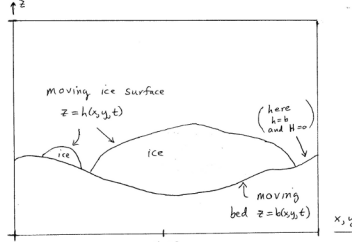 z
moving ice surface
z = h(x,y,t)
ice
ice
(here
h=b
and H=0)
moving
bed z=b(x,y,t)
x, y